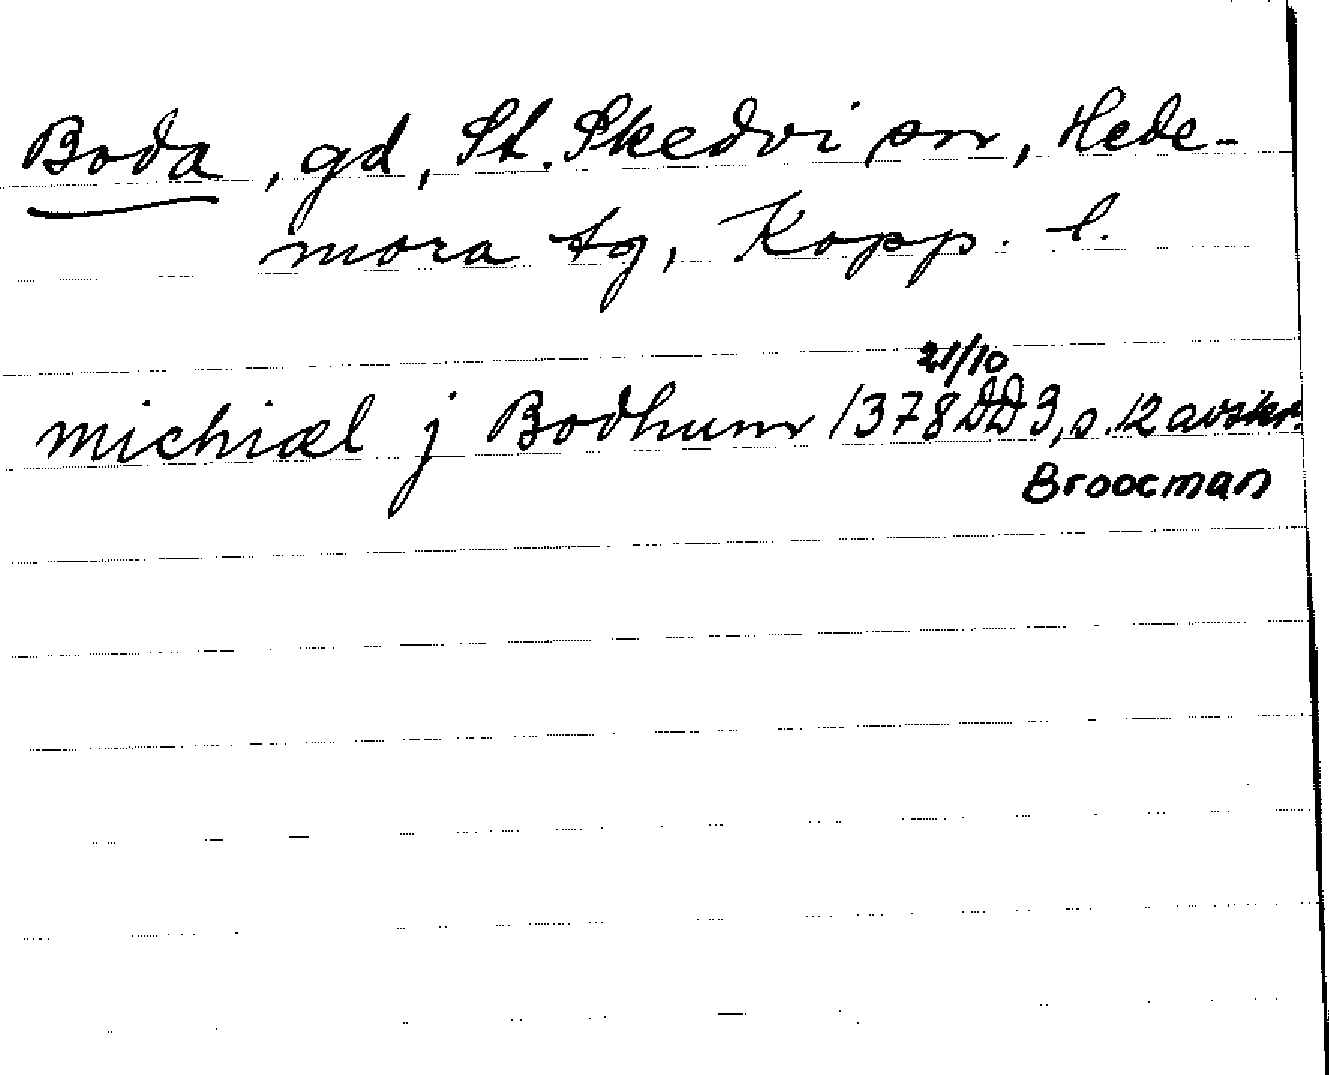 Boda, gd, St. Skedvi sn, Hede-
mora tg, Kopp. l.
21/10
michiæl j Bodhum 1378 DD 3, s. 12 avskr.
Broocman